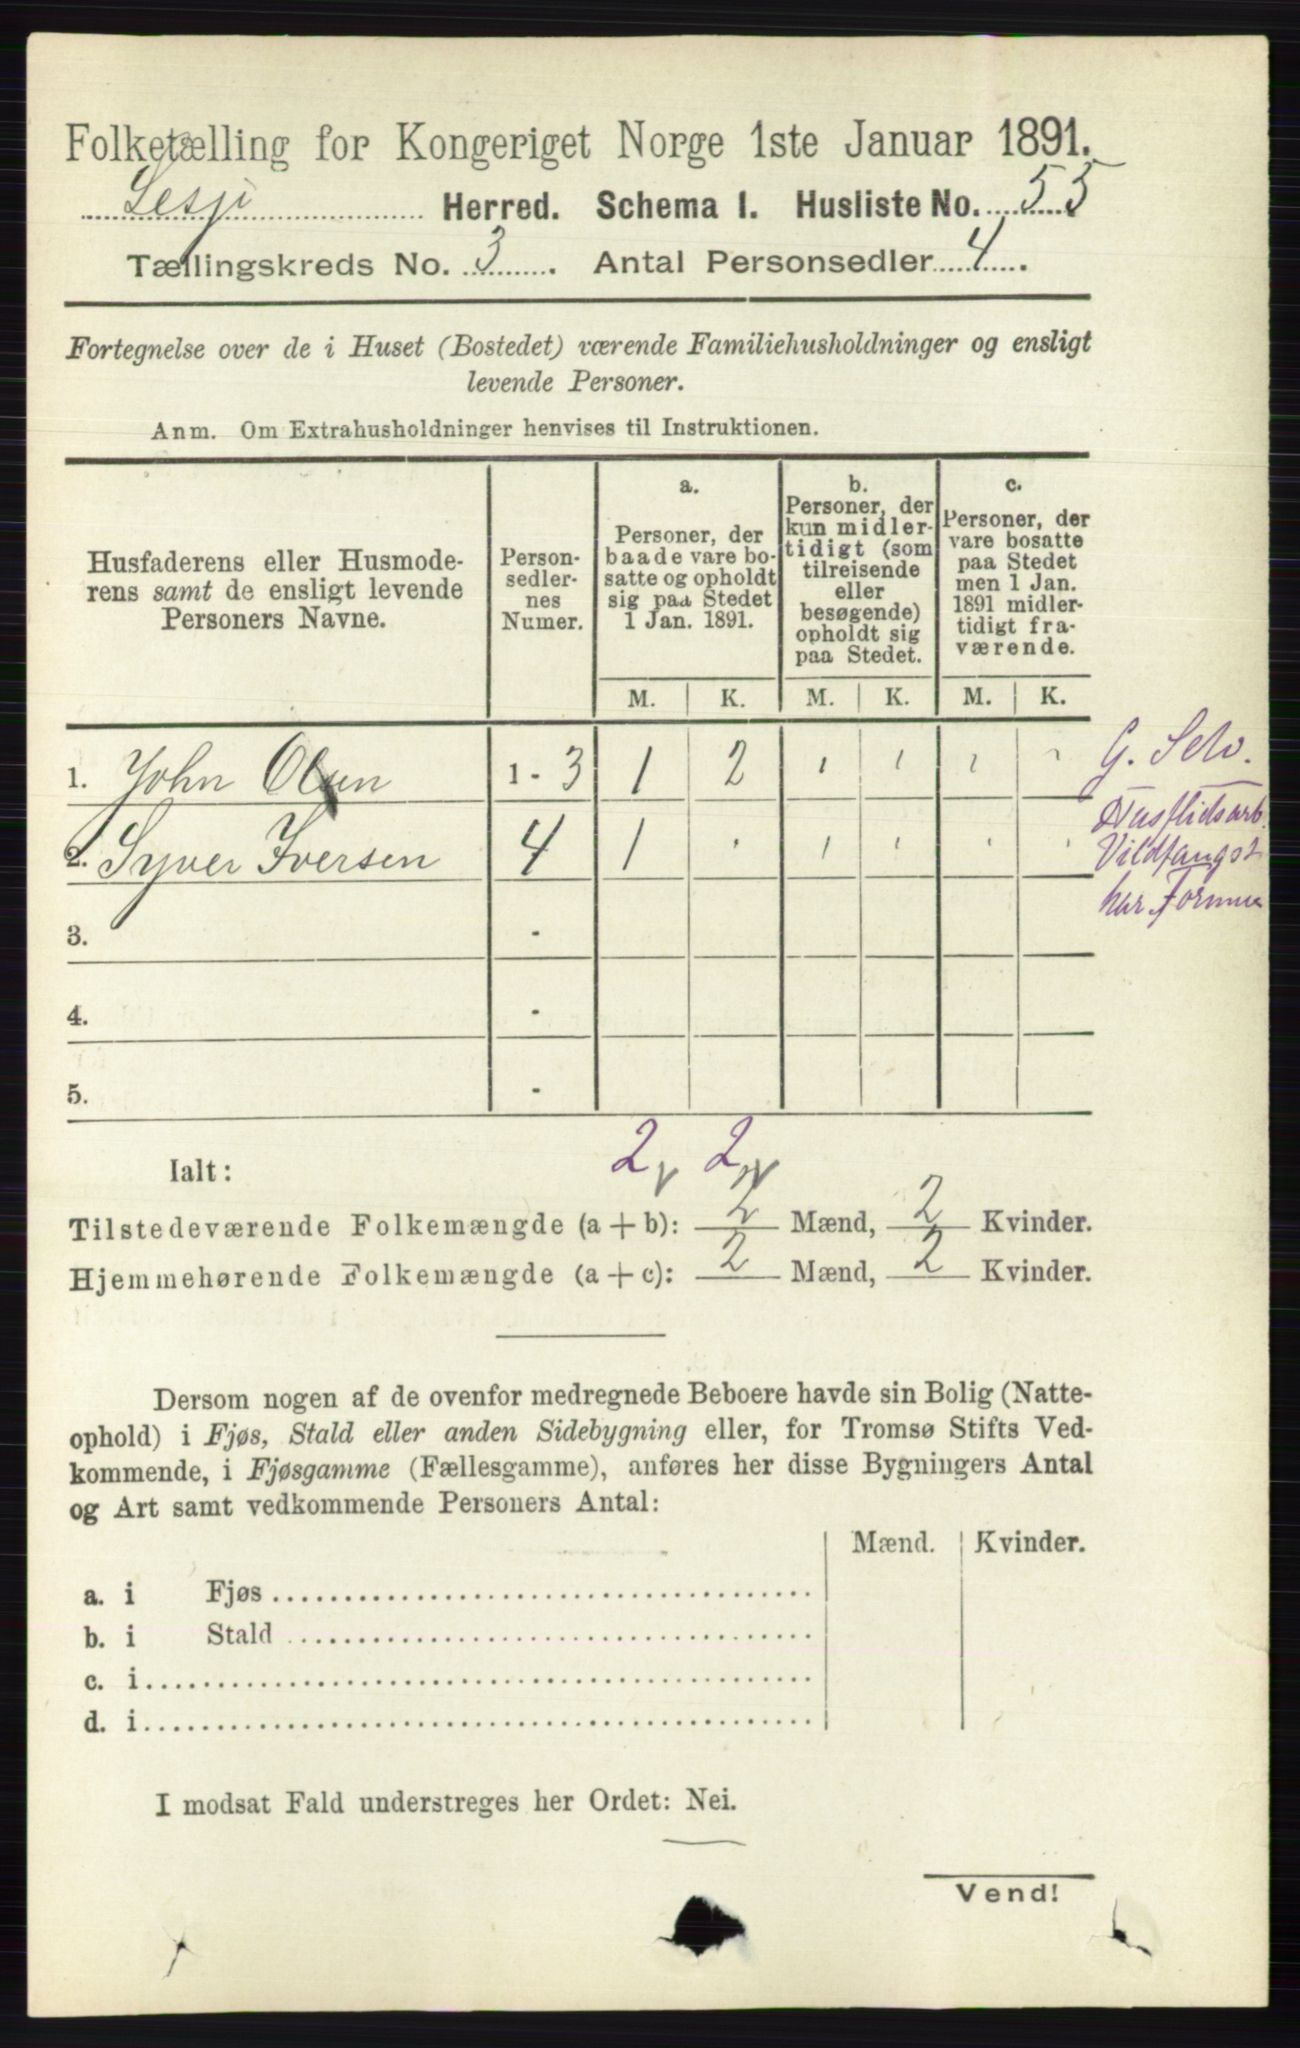 Folketælling for Kongeriget Norge 1ste Januar 1891.
Lesje Herred. Schema I. Husliste No. 55
Tællingskreds No. 3. Antal Personsedler 4.
Fortegnelse over de i Huset (Bostedet) værende Familiehusholdninger og ensligt
levende Personer.
Anm. Om Extrahusholdninger henvises til Instruktionen.
Husfaderens eller Husmode-
rens samt de ensligt levende
Personers Navne.
Person-
sedler-
nes
Numer.
a.
Personer, der
baade vare bo-
satte og opholdt
sig paa Stedet
1 Jan. 1891.
b.
Personer, der
kun midler-
tidigt (som
tilreisende
eller
besøgende)
opholdt sig
paa Stedet.
c.
Personer, der
vare bosatte
paa Stedet
men 1 Jan.
1891 midler-
tidigt fra-
værende.
M. K. M. K. M. K.
1. John Olsen 1 - 3 1 2
G. Selv.
2. Syver Iversen 4 1
Husflidsarb.
Vildfangst
har Formue
3. -
4. -
5. -
2 2
Ialt:
Tilstedeværende Folkemængde (a + b): 2 Mænd, 2 Kvinder.
Hjemmehørende Folkemængde (a + c): 2 Mænd, 2 Kvinder.
Dersom nogen af de ovenfor medregnede Beboere havde sin Bolig (Natte-
ophold) i Fjøs, Stald eller anden Sidebygning eller, for Tromsø Stifts Ved-
kommende, i Fjøsgamme (Fællesgamme), anføres her disse Bygningers Antal
og Art samt vedkommende Personers Antal:
Mænd. Kvinder.
a. i Fjøs
b. i Stald
c. i
d. i
I modsat Fald understreges her Ordet: Nei.
Vend!